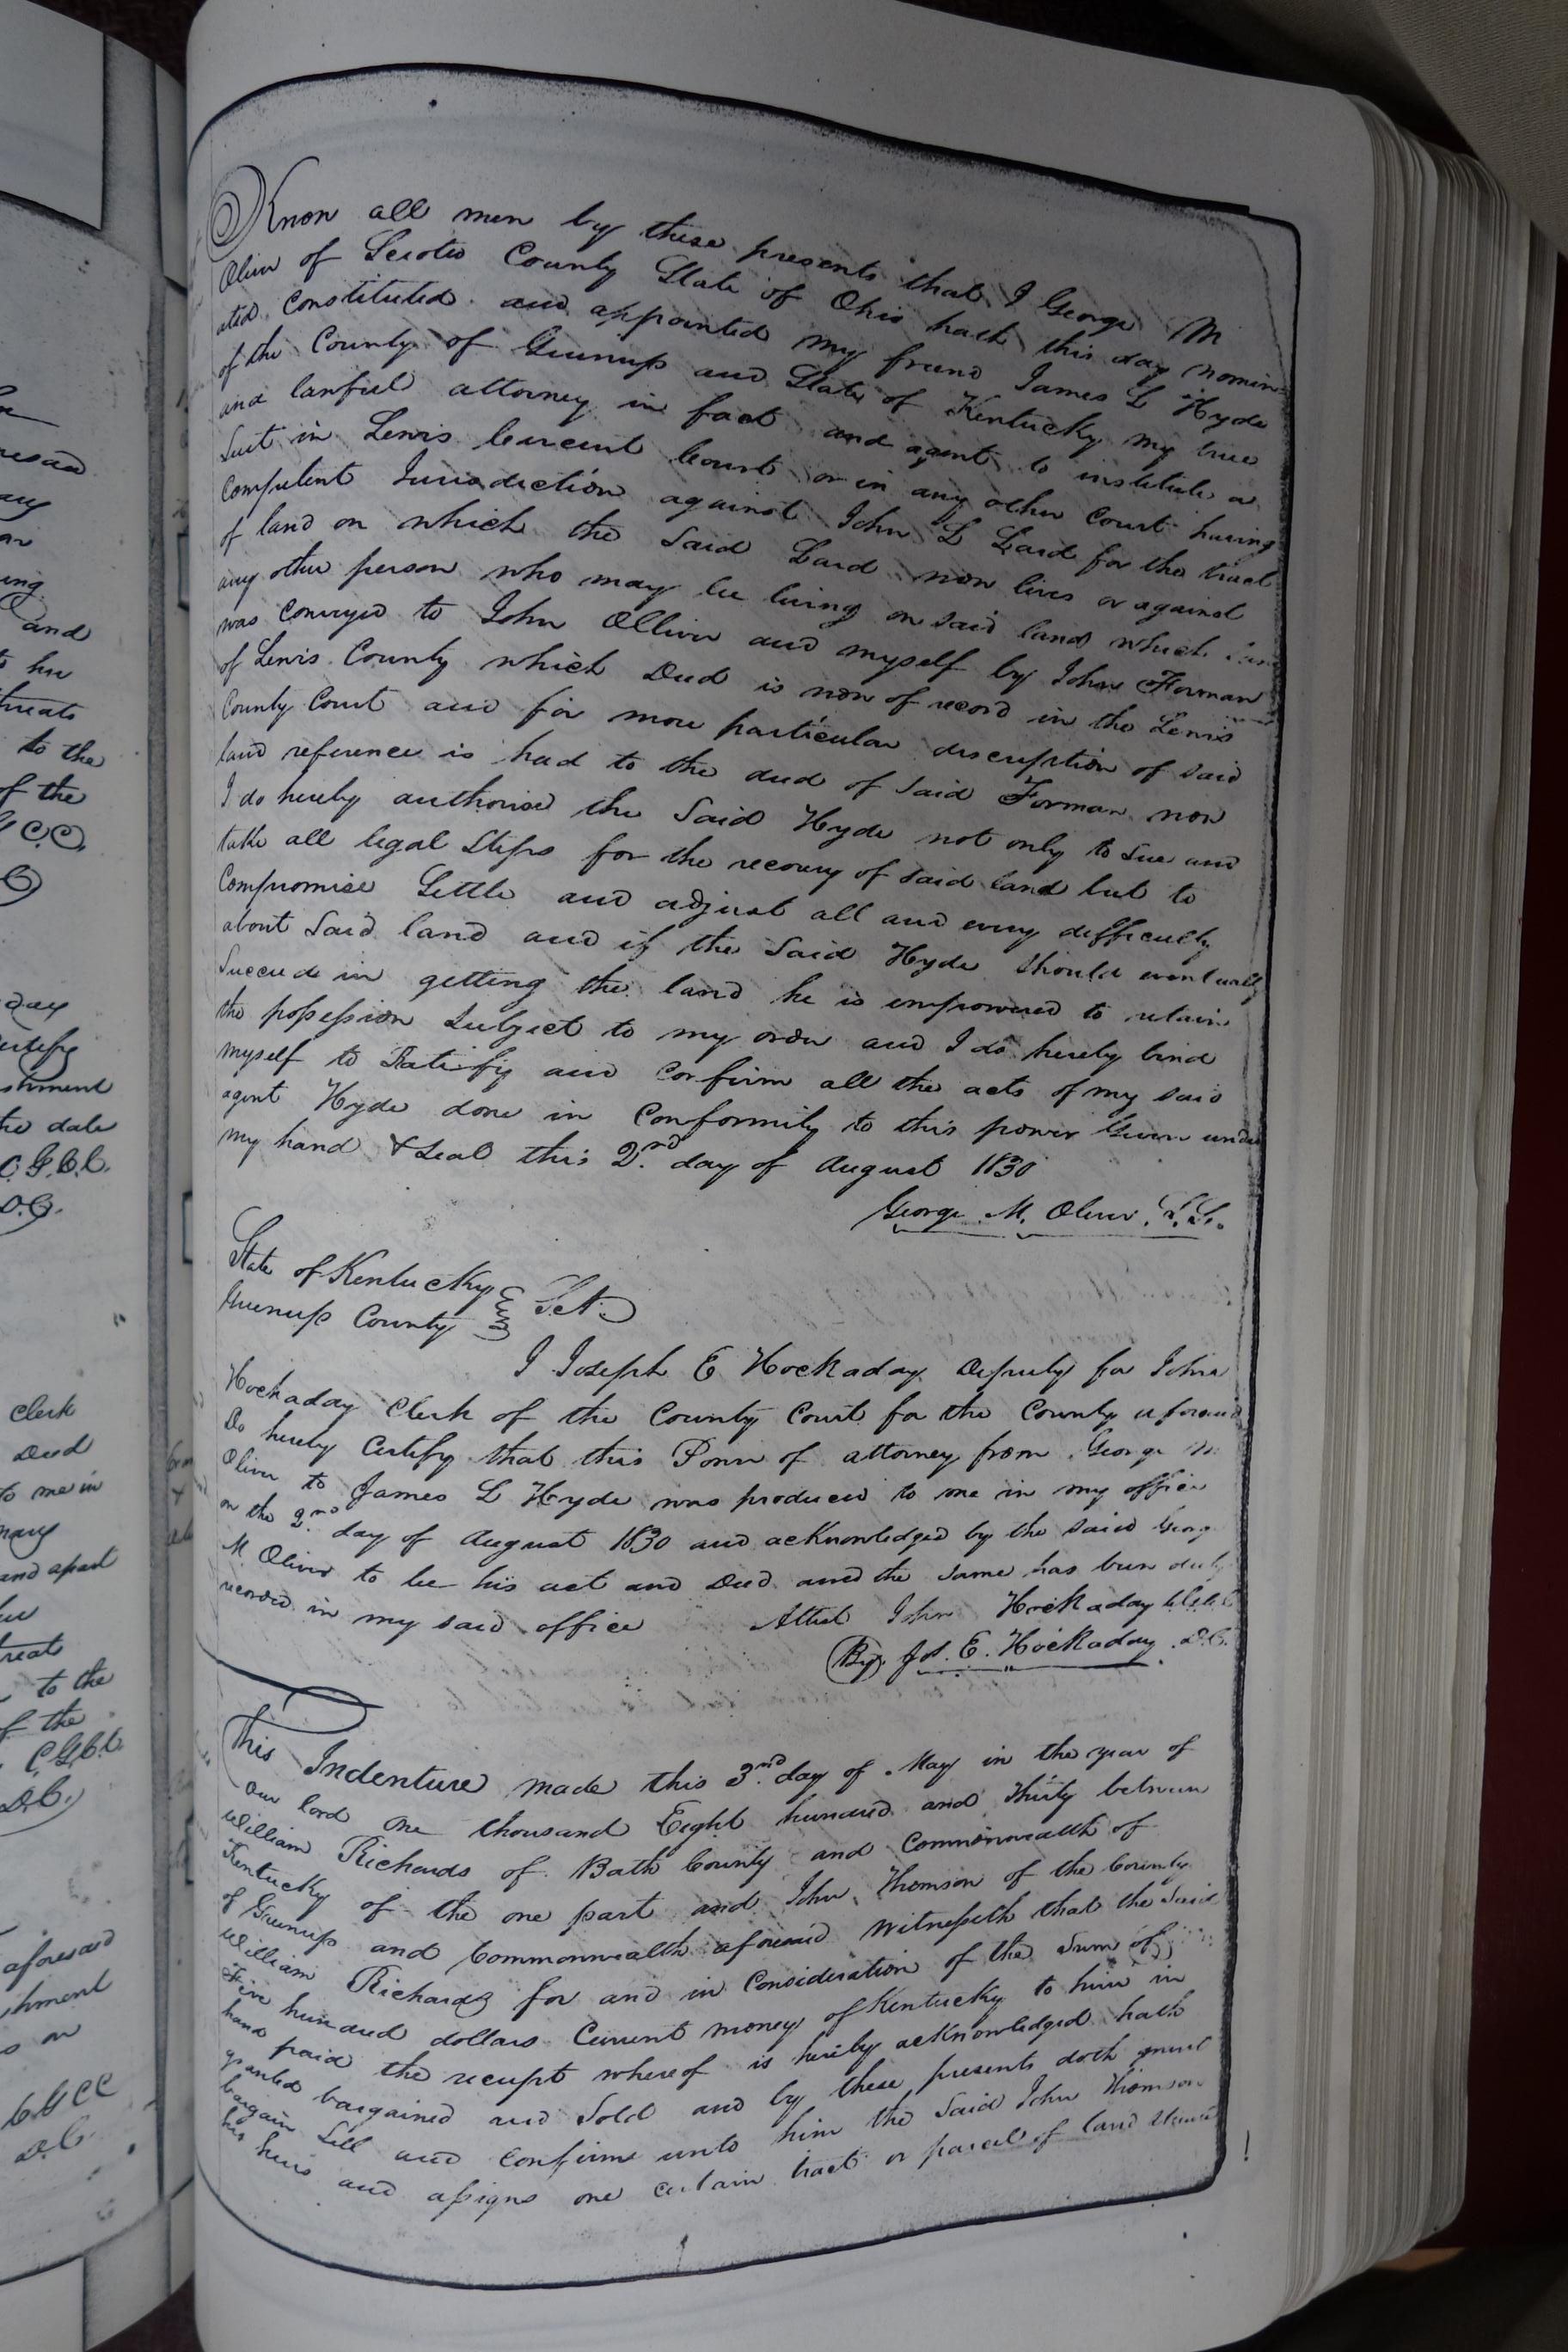 Know all men by these presents that I George M
Oliver of Scioto County State of Ohio hath this day nomin-
ated constituted and appointed my friend James L Hyde
of the County of Greenup and State of Kentucky my true
and lawful attorney in fact and agent to institute a
Suit in Lewis Circuit Court or in any other Court having
Competent Jurisdiction against John L Laird for the tract
of land on which the Said Laird now lives or against
any other person who may be living on said land which land
was conveyed to John Olliver and myself by John Forman
of Lewis County which Deed is now of record in the Lewis
County Court and for more particular description of said
land reference is had to the deed of Said Forman now
I do hereby authorise the Said Hyde not only to Sue and
take all legal Steps for the recovery of said land but to
Compromise Settle and adjust all and every difficulty
about Said land and if the Said Hyde should eventually
Succeed in getting the land he is empowered to retain
the possession Subject to my order and I do hereby bind
myself to Ratify and Confirm all the acts of my said
agent Hyde done in Conformity to this power Given under
my hand & Seal this 2nd day of August 1830
George M. Oliver L.S.
State of Kentucky
Greenup County } Sct.
I Joseph E Hockaday Deputy for John
Hockaday Clerk of the County Court for the County aforesaid
Do hereby Certify that this Power of attorney from George M
Oliver to James L Hyde was produced to me in my office
on the 2nd day of August 1830 and acknowledged by the said Georg
M. Oliver to be his act and Deed and the same has been duly
recorded in my said office Attest John Hockaday
By Jos. E. Hockaday D.C.
This Indenture made this 3rd day of May in the year of
our lord one thousand Eight hundred and thirty between
William Richards of Bath County and Commonwealth of
Kentucky of the one part and John Thomson of the County
of Greenup and Commonwealth aforesaid Witnesseth that the Said
William Richards for and in Consideration of the Sum of
Five hundred dollars Current money of Kentucky to him in
hand paid the receipt whereof is hereby acknowledged hath
granted bargained and Sold and by these presents doth grant
bargain Sell and Confirm unto him the Said John Thomson
his heirs and assigns one certain tract or parcel of land
and
to her
threats
to the
of the
C.C.
day
certify
the date
D.C.
clerk
Deed
to me in
and apart
treats
to the
of the
D.C.
aforesaid
D.C.